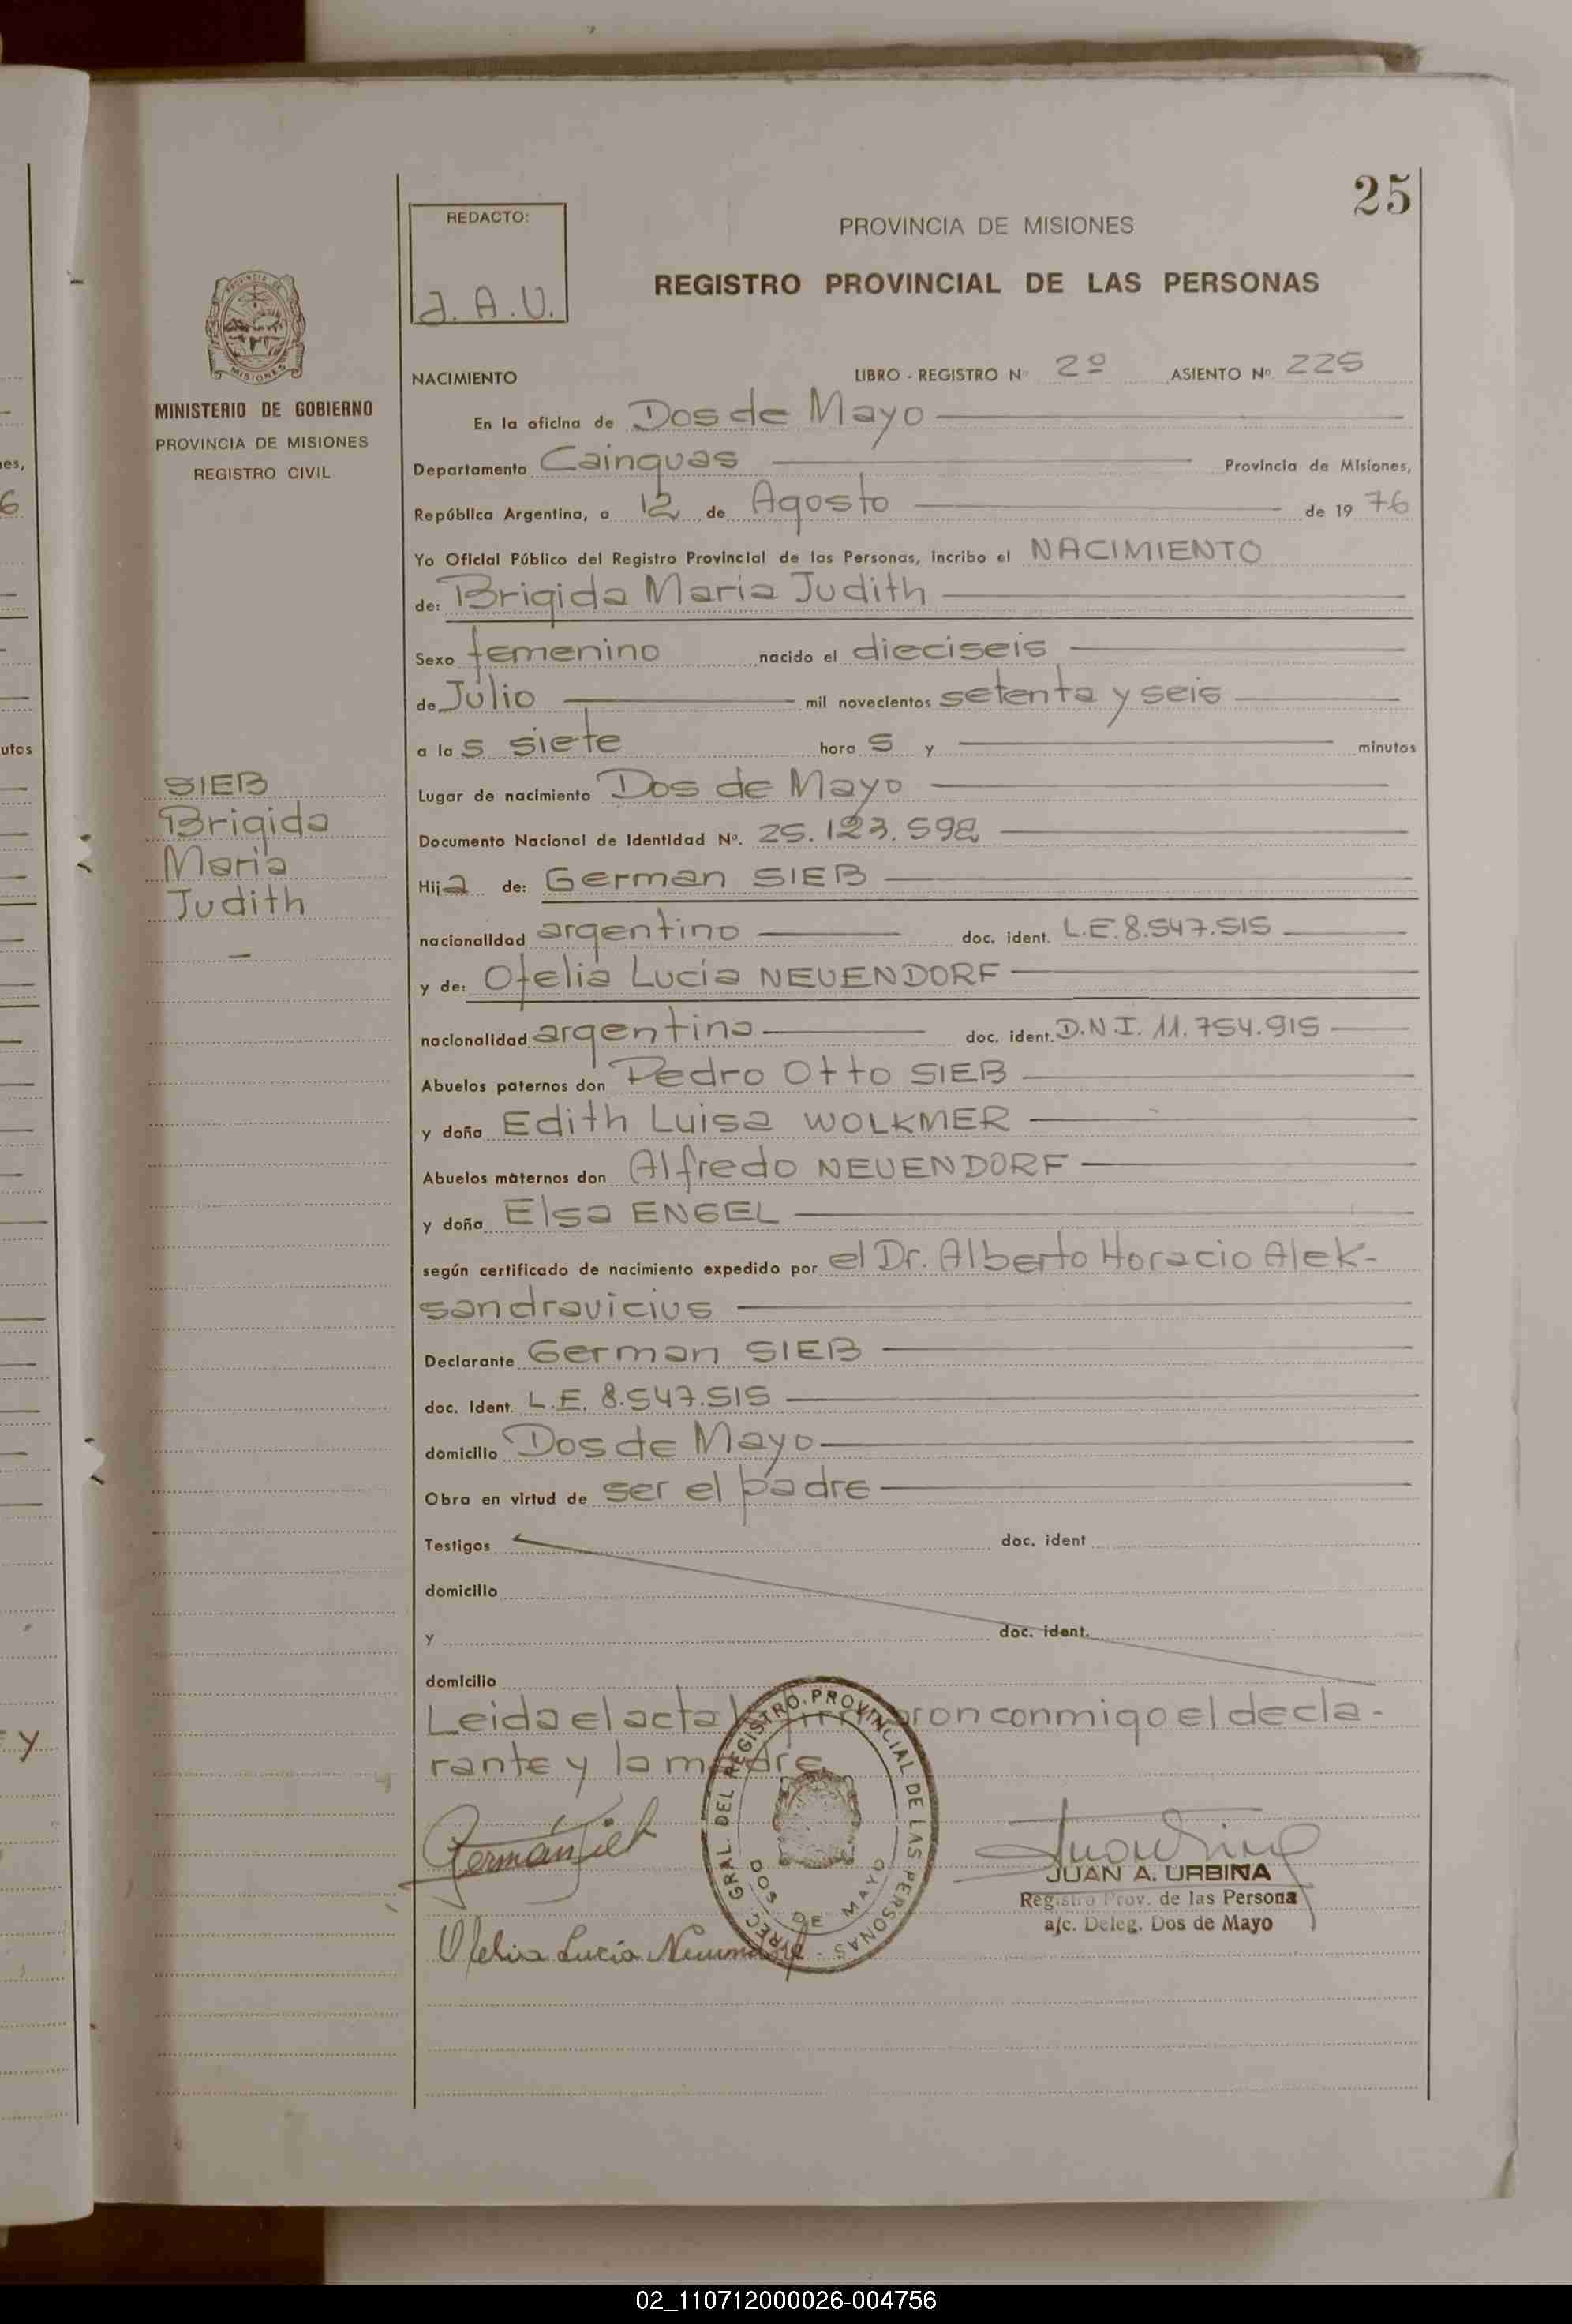 25
REDACTO:
J. A. U.
PROVINCIA DE MISIONES
REGISTRO PROVINCIAL DE LAS PERSONAS
PROVINCIA DE
MISIONES
MINISTERIO DE GOBIERNO
PROVINCIA DE MISIONES
REGISTRO CIVIL
NACIMIENTO LIBRO - REGISTRO Nº 2º ASIENTO Nº 225
En la oficina de Dos de Mayo
Departamento Cainguas Provincia de Misiones,
República Argentina, a 12 de Agosto de 1976
Yo Oficial Público del Registro Provincial de las Personas, incribo el NACIMIENTO
de: Brigida Maria Judith
Sexo femenino nacido el dieciseis
de Julio mil novecientos setenta y seis
a las siete horas y minutos
Lugar de nacimiento Dos de Mayo
Documento Nacional de Identidad Nº. 25.123.592
Hija de: German SIEB
nacionalidad argentino doc. ident. L.E. 8.547.515
y de: Ofelia Lucia NEUENDORF
nacionalidad argentina doc. ident. D.N.I. 11.754.915
Abuelos paternos don Pedro Otto SIEB
y doña Edith Luisa WOLKMER
Abuelos maternos don Alfredo NEUENDORF
y doña Elsa ENGEL
según certificado de nacimiento expedido por el Dr. Alberto Horacio Alek-
sandravicius
Declarante German SIEB
doc. ident. L.E. 8.547.515
domicilio Dos de Mayo
Obra en virtud de ser el padre
Testigos doc. ident
domicilio
y doc. ident.
domicilio
Leida el acta conmigo el decla-
rante y la madre
SIEB
Brigida
Maria
Judith
Germán Sieb
Ofelia Lucia Neuendorf
GRAL. DEL REGISTRO PROVINCIAL DE LAS PERSONAS
DOS DE MAYO
JUAN A. URBINA
Registro Prov. de las Persona
a/c. Deleg. Dos de Mayo
es,
6
utos
y
02_110712000026-004756